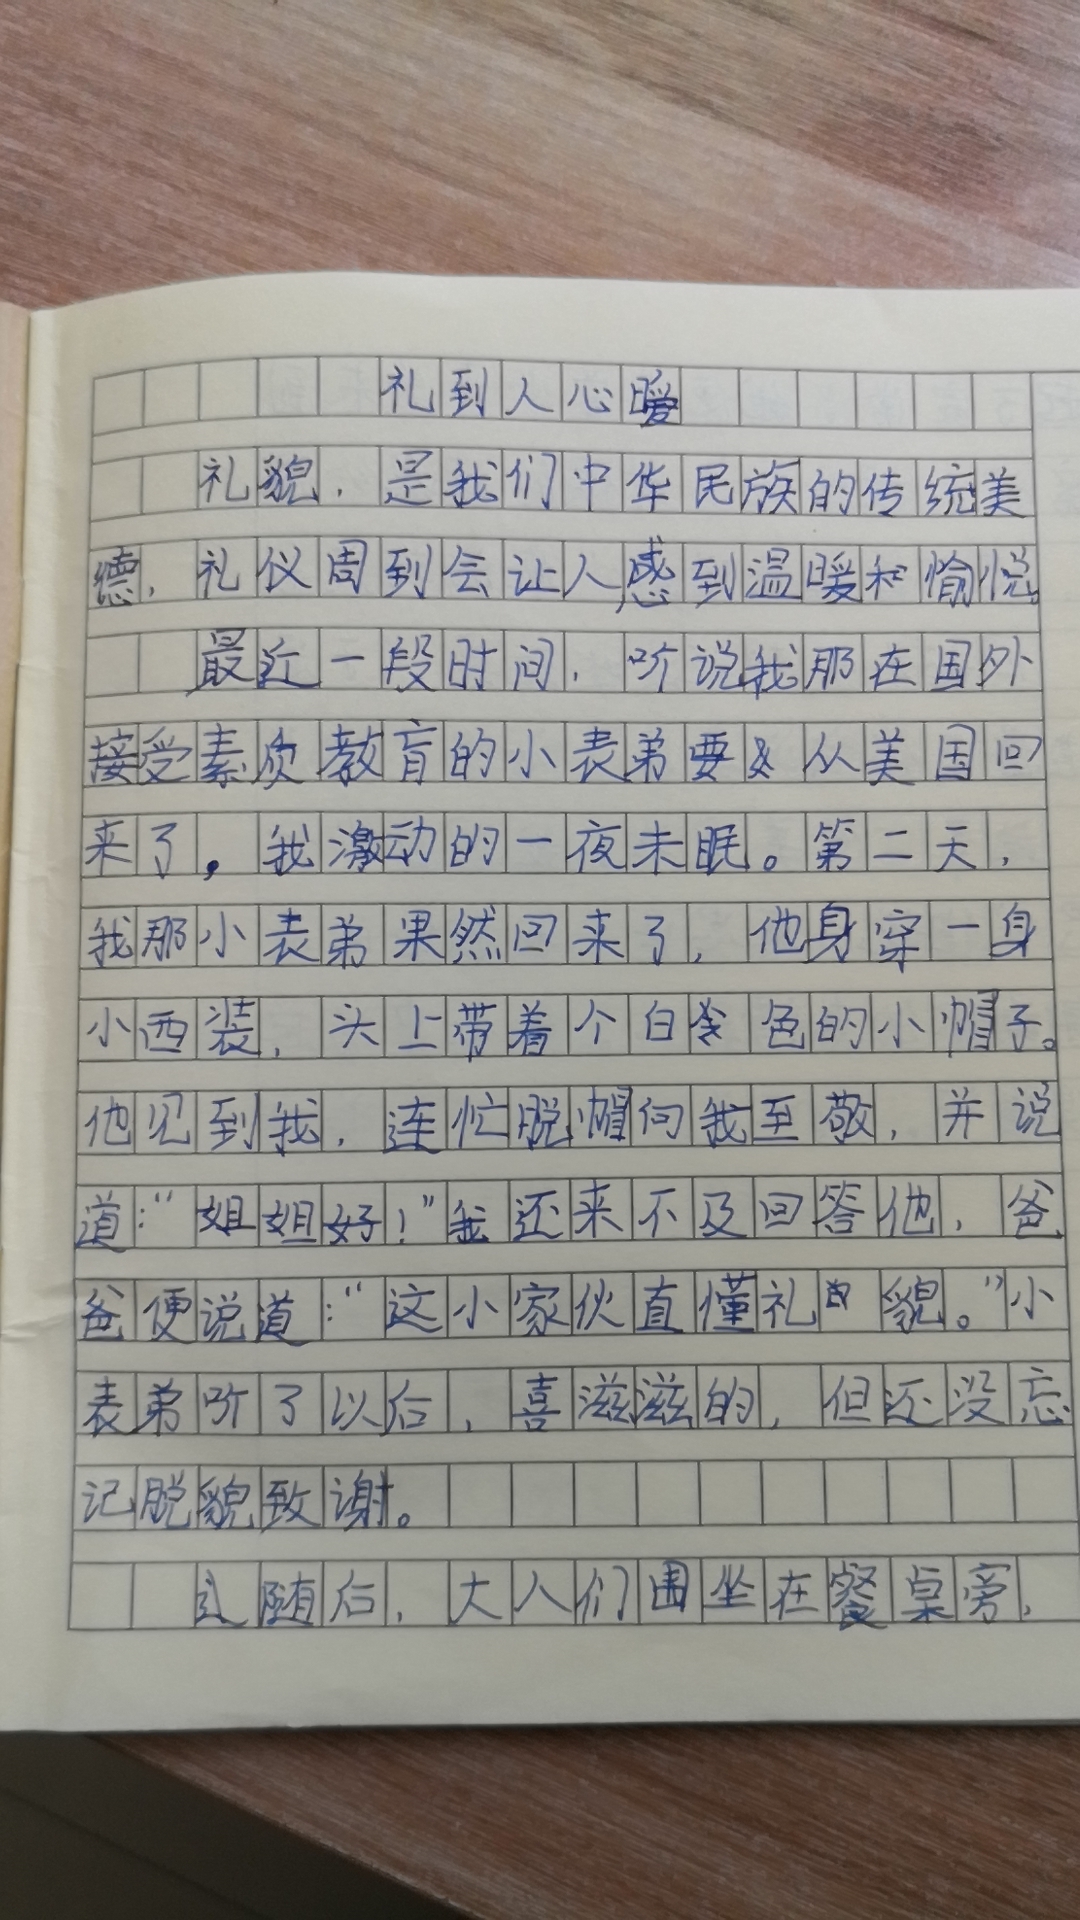 礼到人心暖
礼貌，是我们中华民族的传统美
德，礼仪周到会让人感到温暖和愉悦。
最近一段时间，听说我那在国外
接受素质教育的小表弟要从美国回
来了。我激动的一夜未眠。第二天，
我那小表弟果然回来了，他身穿一身
小西装，头上带着个白色的小帽子。
他见到我，连忙脱帽向我至敬，并说
道：“姐姐好！”我还来不及回答他，爸
爸便说道：“这小家伙直懂礼貌。”小
表弟听了以后，喜滋滋的，但还没忘
记脱貌致谢。
随后，大人们围坐在餐桌旁，